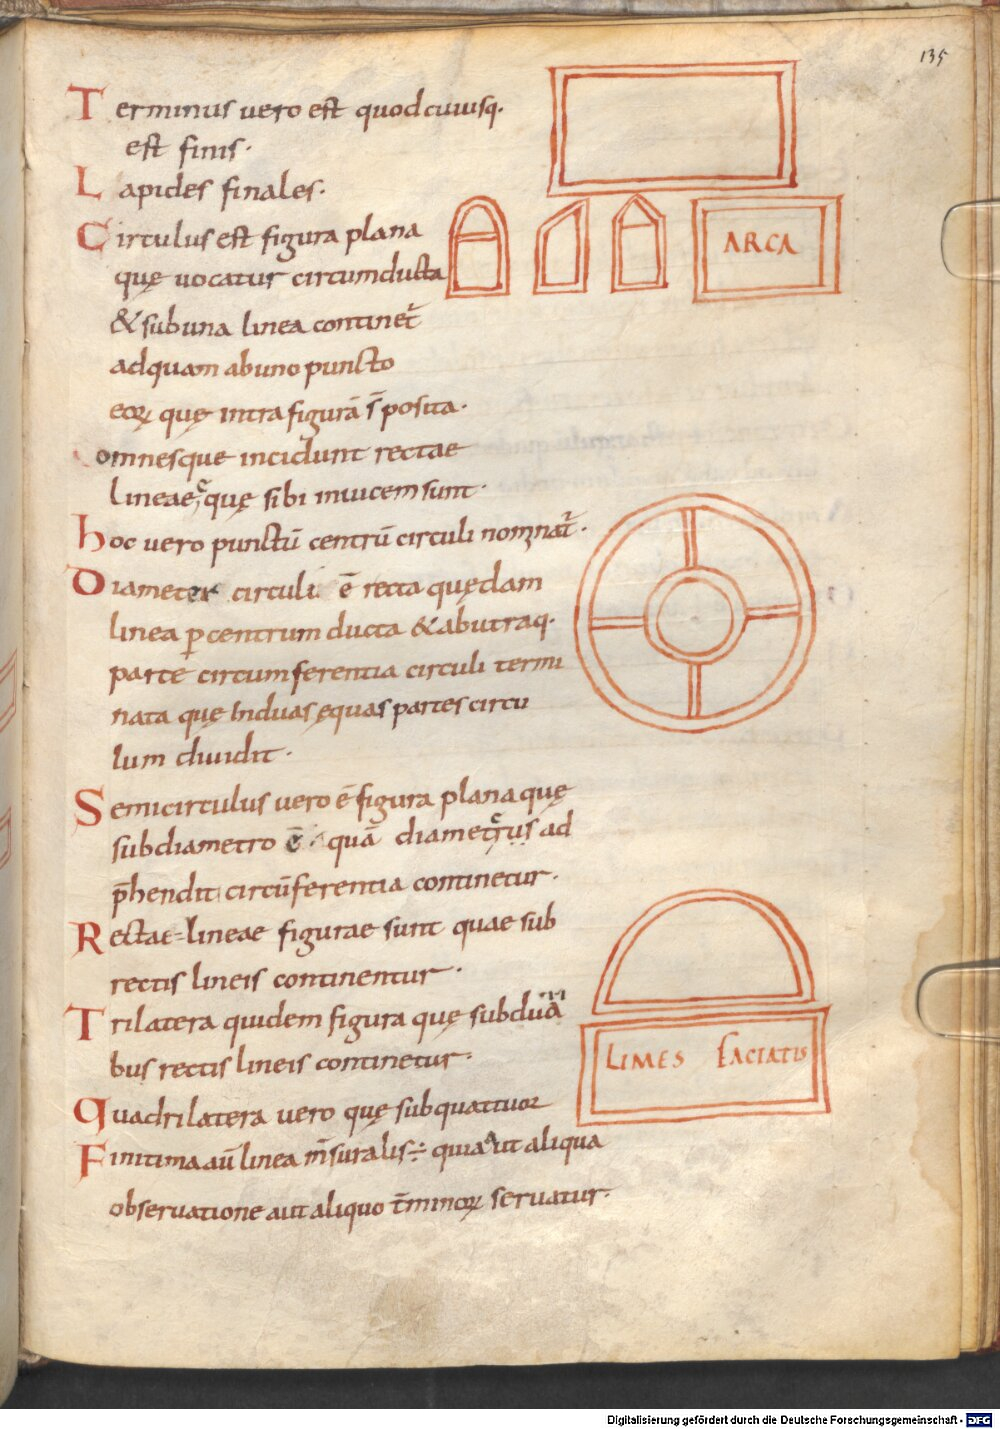 135
Terminus vero est quodcuiusq.
est finis.
Lapides finales.
Circulus est figura plana
quę vocatur circumducta
& sub una linea continet̄
ad quam ab uno puncto
eoꝝ quę intra figurā s̄ posita.
omnesque incidunt rectae
lineae, quę sibi invicem sunt.
ARCA
hoc vero punctū centrū circuli nominat̄.
Diameter circuli ē recta quędam
linea ꝑ centrum ducta & ab utraq.
parte circumferentia circuli termi
nata quę In duas ęquas partes circu
lum dividit.
Semicirculus vero ē figura plana quę
sub diametro ē quā diametrus ad
p̄hendit circūferentia continetur.
Rectae lineae figurae sunt quae sub
rectis lineis continentur.
Trilatera quidem figura quę sub duā
bus rectis lineis continetur.
Quadrilatera vero quę sub quattuor
LIMES FACIATIS
Finitima aū linea m̄suralis ÷ quia aut aliqua
observatione aut aliquo t̄minoꝝ servatur.
Digitalisierung gefördert durch die Deutsche Forschungsgemeinschaft - DFG